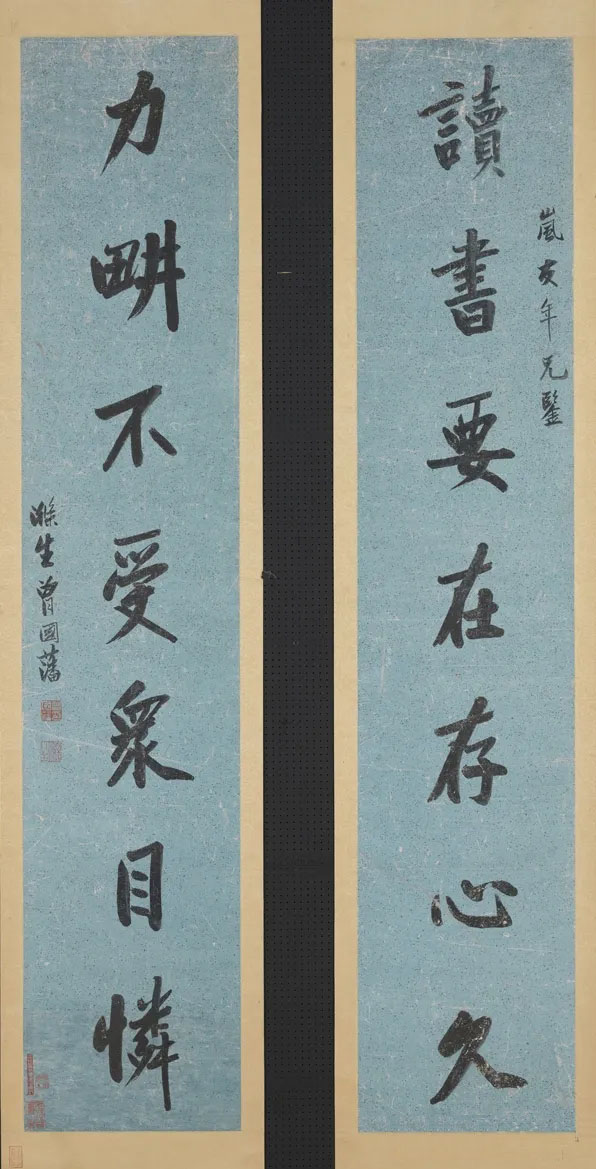 嵐友年兄鑒
讀書要在存心久
力畊不受眾目憐
滌生曾國藩